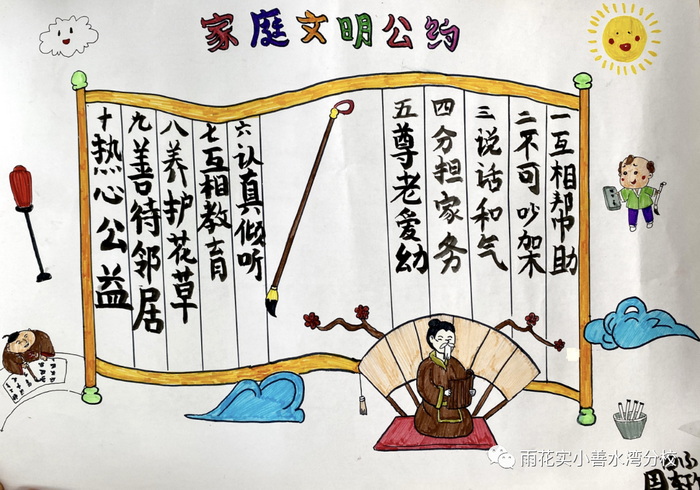 家庭文明公约
一互相帮助
二不可吵架
三说话和气
四分担家务
五尊老爱幼
六认真倾听
七互相教育
八养护花草
九善待邻居
十热心公益
雨花实小善水湾分校